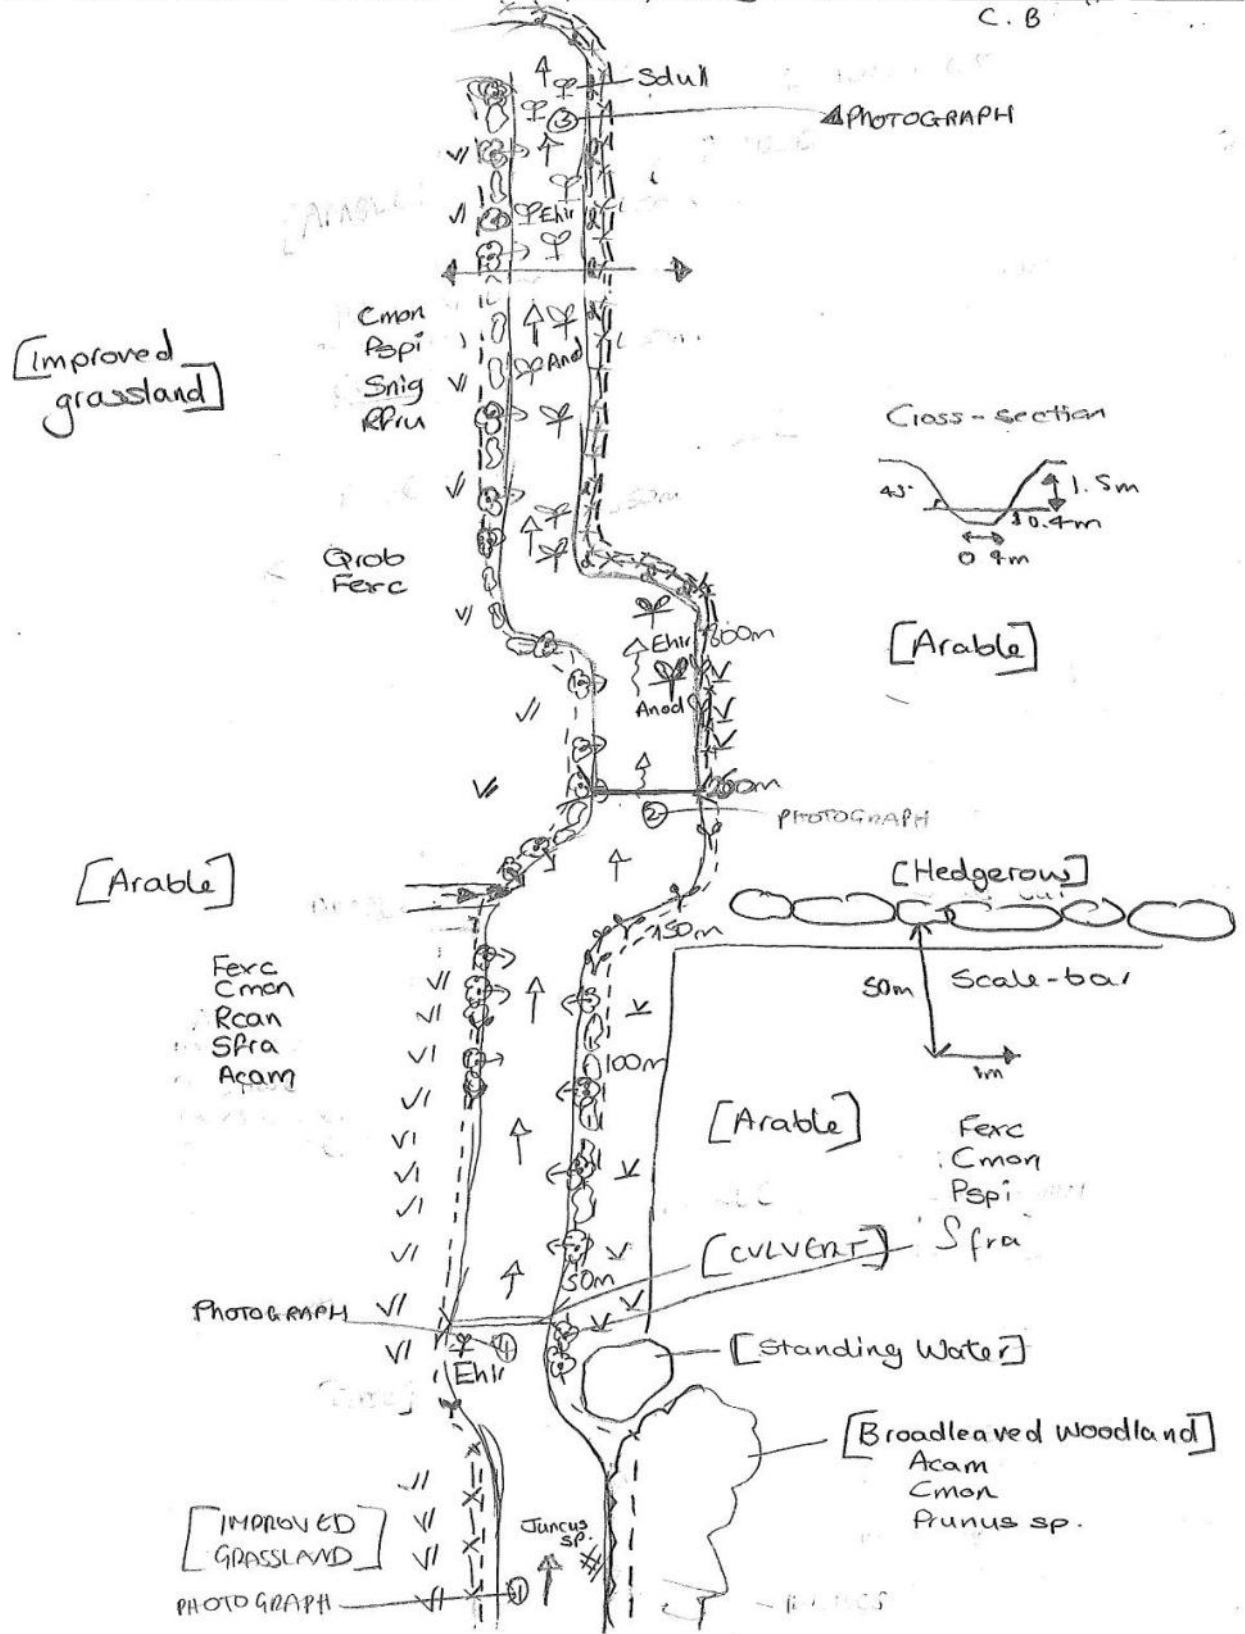 C. B
Sdull
③
PHOTOGRAPH
Ehir
Cmon
Pspi
Snig
Rfru
And
[Improved
grassland]
Cross-section
45°
1.5m
0.4m
0.9m
Qrob
Ferc
Ehir
[Arable]
Anod
②
PHOTOGRAPH
[Arable]
[Hedgerow]
150m
50m
Scale-bar
1m
Fexc
Cmon
Rcan
Sfra
Acam
100m
[Arable]
Fexc
Cmon
Pspi
Sfra
[CULVERT]
50m
PHOTOGRAPH
Ehir
[Standing Water]
[Broadleaved woodland]
Acam
Cmon
Prunus sp.
[IMPROVED
GRASSLAND]
Juncus
sp.
PHOTOGRAPH
①